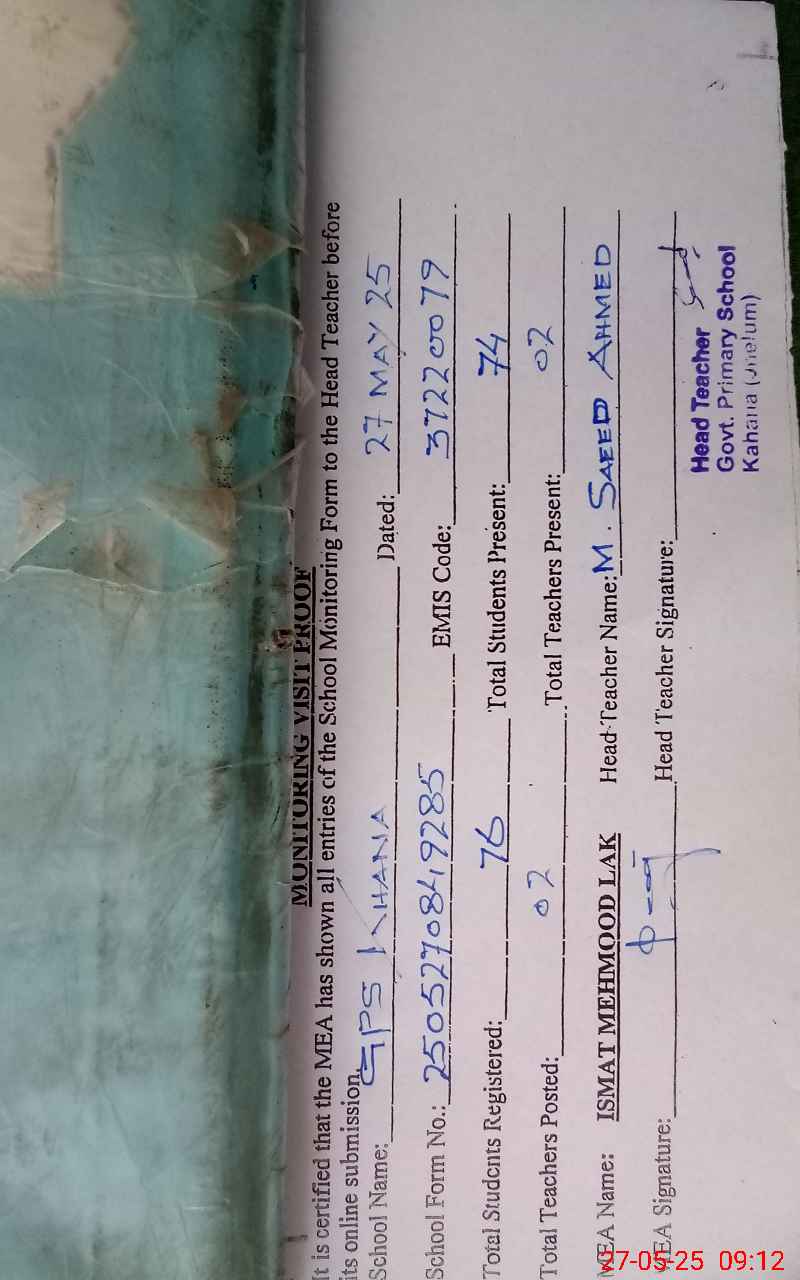 MONITORING VISIT PROOF
It is certified that the MEA has shown all entries of the School Monitoring Form to the Head Teacher before
its online submission.
School Name: GPS KHANA Dated: 27 MAY 25
School Form No.: 250527084 9285 EMIS Code: 37220079
Total Students Registered: 76 Total Students Present: 74
Total Teachers Posted: 02 Total Teachers Present: 02
MEA Name: ISMAT MEHMOOD LAK Head Teacher Name: M. SAEED AHMED
MEA Signature: Head Teacher Signature:
Head Teacher
Govt. Primary School
Kahana (Jhelum)
27-05-25 09:12